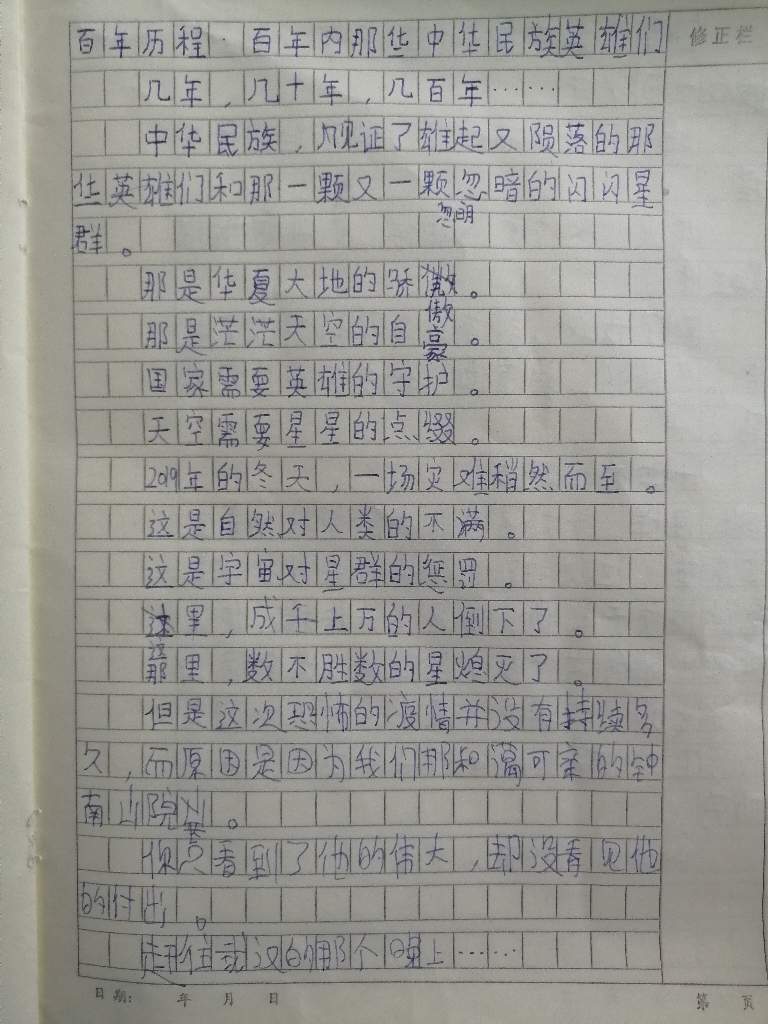 百年历程·百年内那些中华民族英雄们
修正栏
几年，几十年，几百年……
中华民族，见证了雄起又陨落的那
些英雄们和那一颗又一颗忽暗的闪闪星
忽明
群。
那是华夏大地的骄傲。
那是茫茫天空的自豪。
国家需要英雄的守护。
天空需要星星的点缀。
2019年的冬天，一场灾难稍然而至。
这是自然对人类的不满。
这是宇宙对星群的惩罚。
这里，成千上万的人倒下了。
那里，数不胜数的星熄灭了。
但是这次恐怖的疫情并没有持续多
久，而原因是因为我们那和蔼可亲的钟
南山院
你只看到了他的伟大，却没看见他
的付出。
赶往武汉的那个晚上……
日期: 年 月 日
第 页